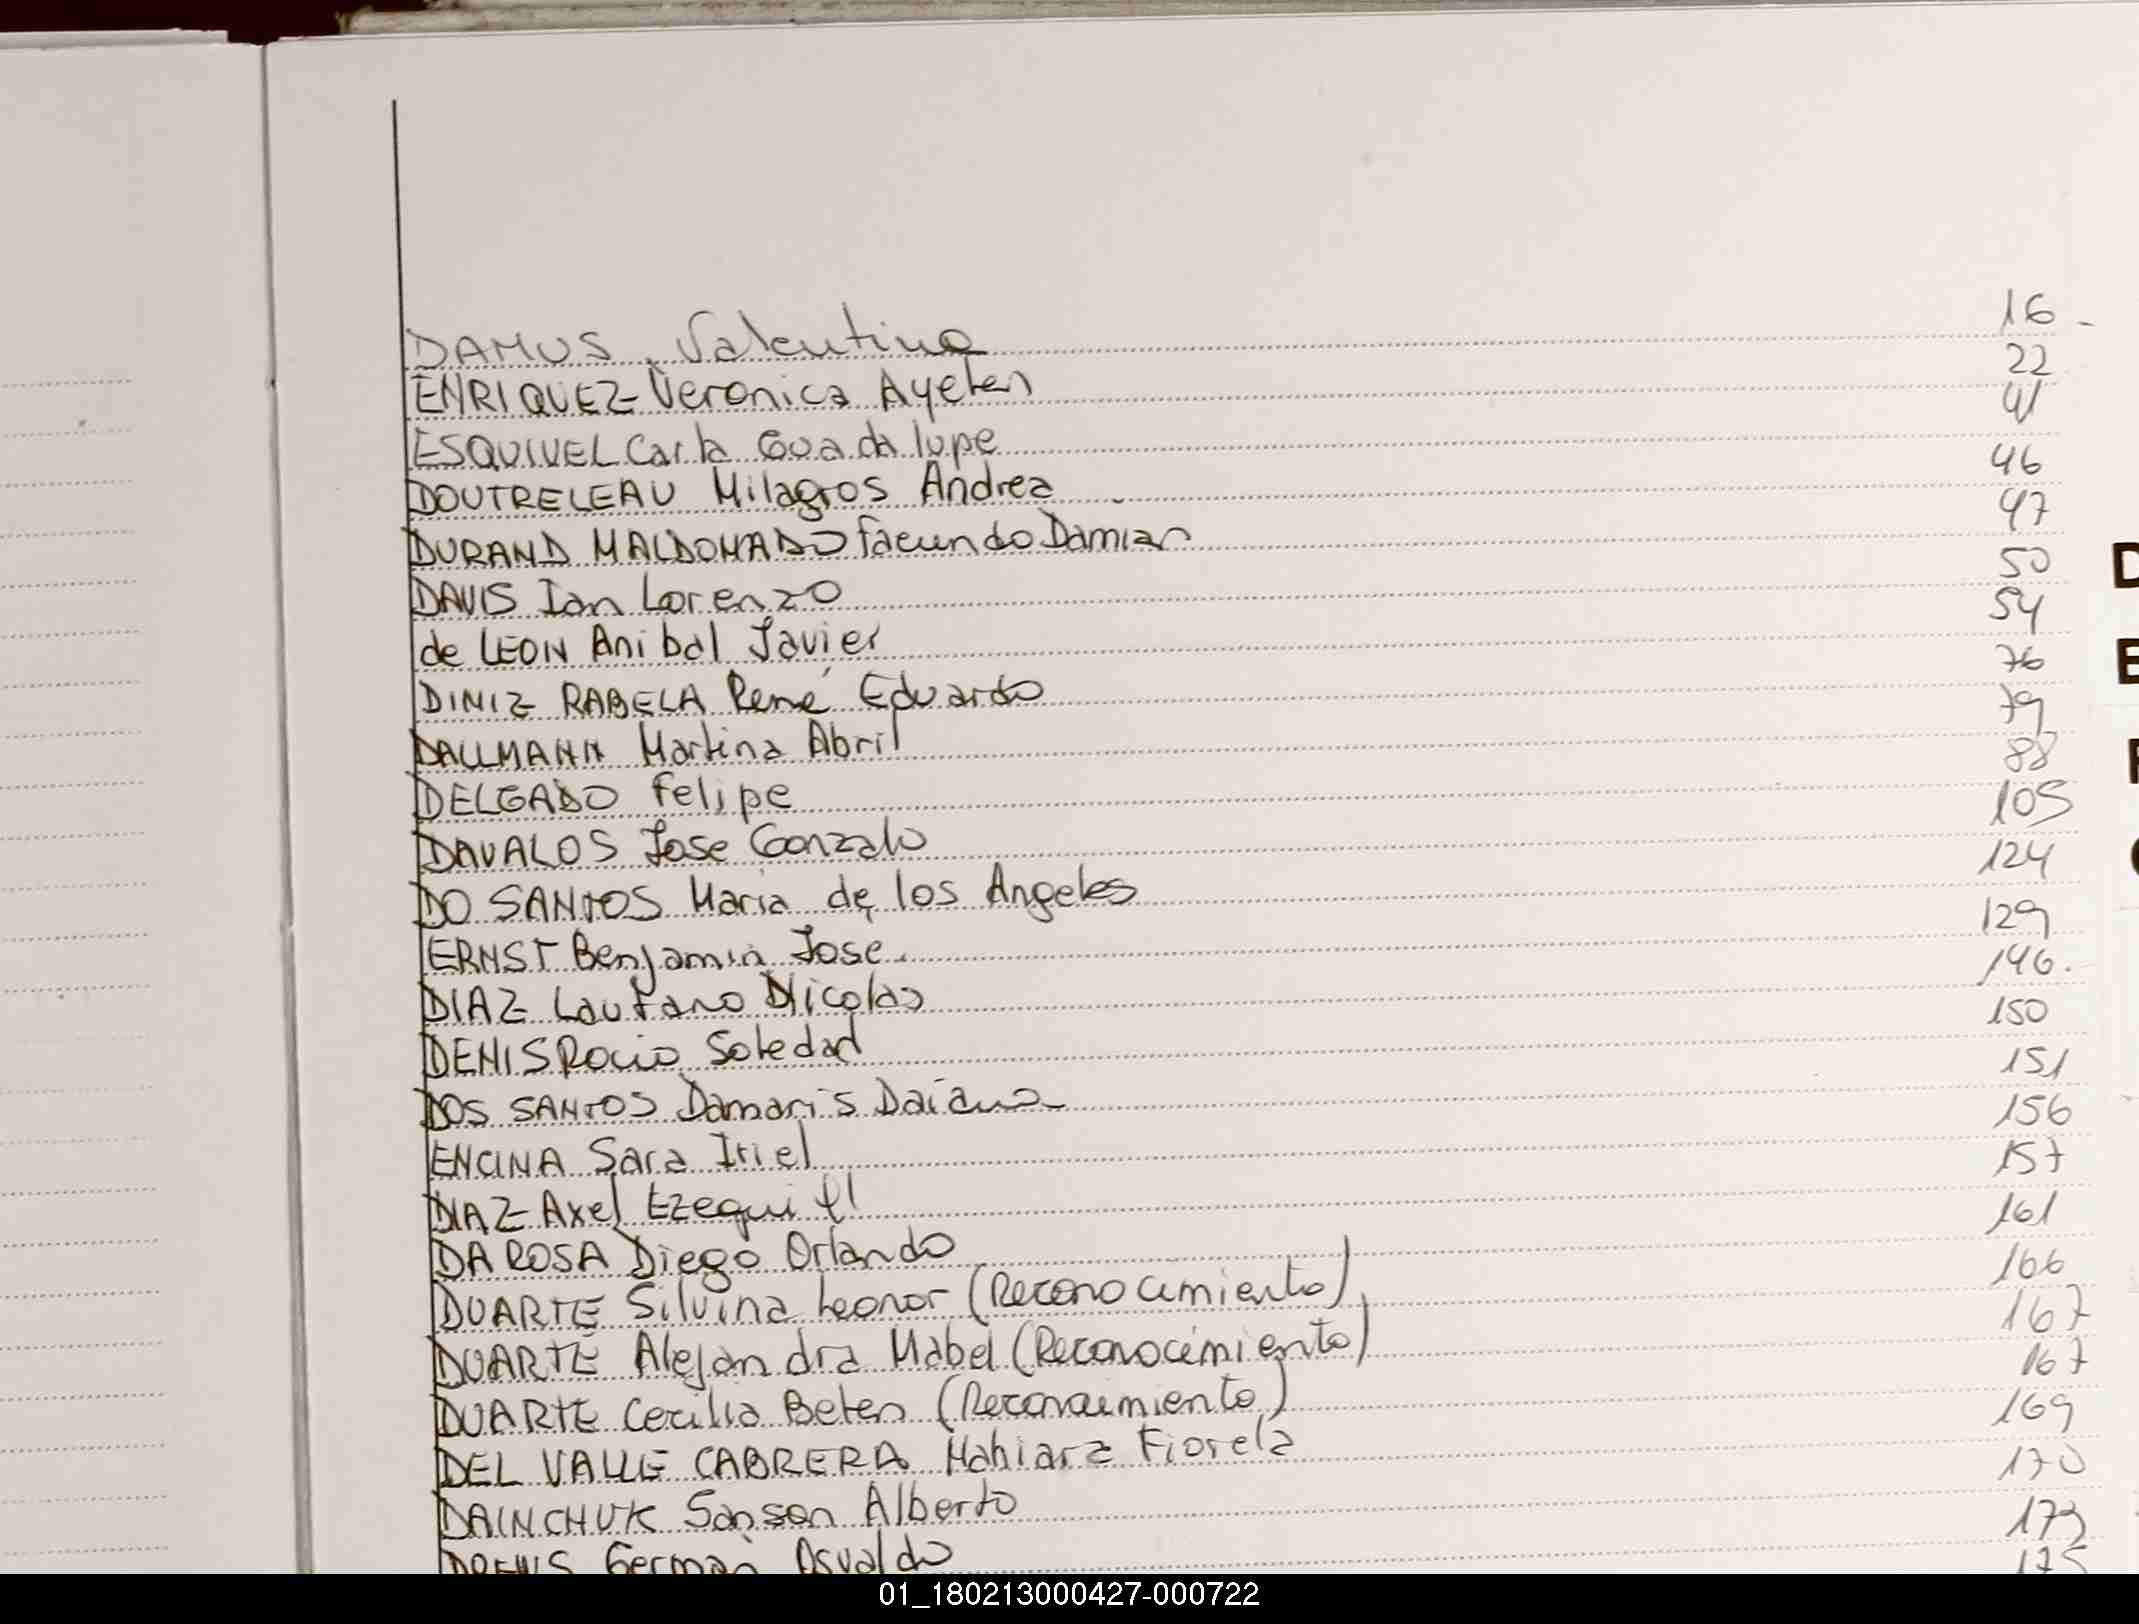 DAMUS Valentina 16
ENRIQUEZ Veronica Ayelen 22
ESQUIVEL Carla Guadalupe 41
DOUTRELEAU Milagros Andrea 46
DURAND MALDONADO Facundo Damian 47
DAVIS Ian Lorenzo 50
de LEON Anibal Javier 54
DINIZ RABELA René Eduardo 76
DALLMANN Martina Abril 79
DELGADO Felipe 88
DAVALOS Jose Gonzalo 105
DO SANTOS Maria de los Angeles 124
ERNST Benjamin Jose 129
DIAZ Lautaro Nicolas 146.
DENIS Rocio Soledad 150
DOS SANTOS Damaris Daiana 151
ENCINA Sara Iriel 156
DIAZ Axel Ezequiel 157
DA ROSA Diego Orlando 161
DUARTE Silvina Leonor (Reconocimiento) 166
DUARTE Alejandra Mabel (Reconocimiento) 167
DUARTE Cecilia Belen (Reconocimiento) 167
DEL VALLE CABRERA Nahiara Fiorela 169
DAINCHUK Sanson Alberto 170
German Osvaldo 173
175
D
E
F
01_180213000427-000722